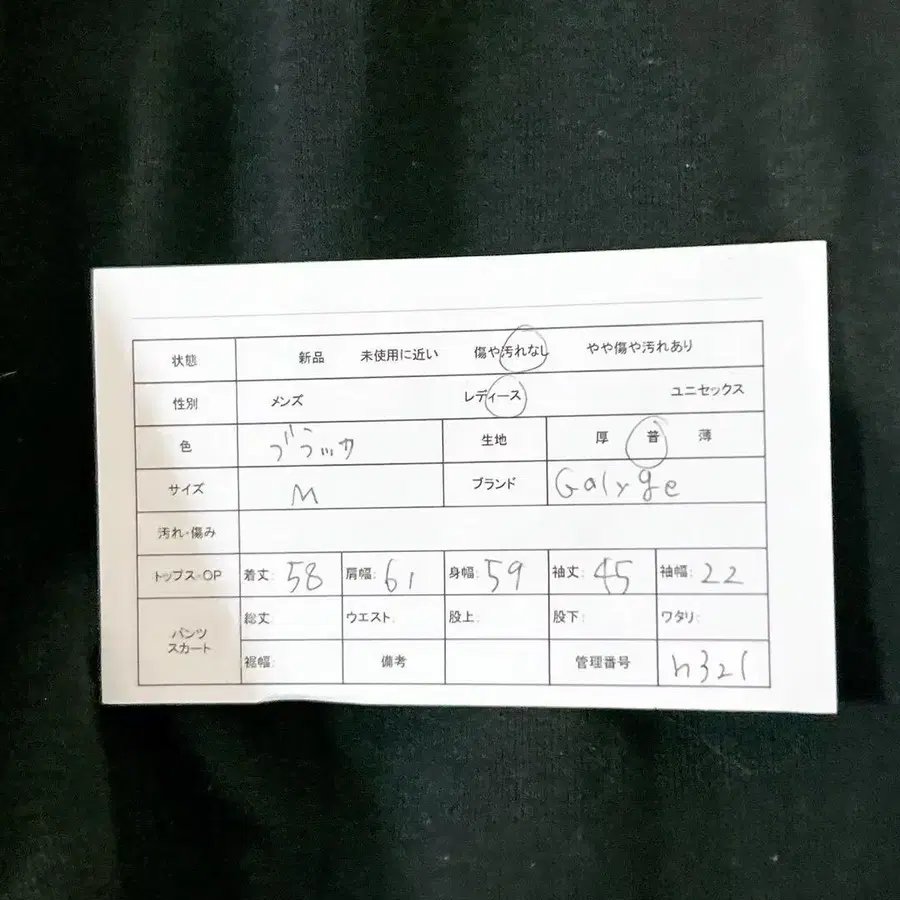 状態 新品 未使用に近い 傷や汚れなし やや傷や汚れあり
性別 メンズ レディース ユニセックス
色 ブラック 生地 厚 普 薄
サイズ M ブランド Galyge
汚れ・傷み
トップス・OP 着丈: 58 肩幅: 61 身幅: 59 袖丈: 45 袖幅: 22
パンツ スカート 総丈: ウエスト: 股上: 股下: ワタリ:
裾幅: 備考 管理番号 h321